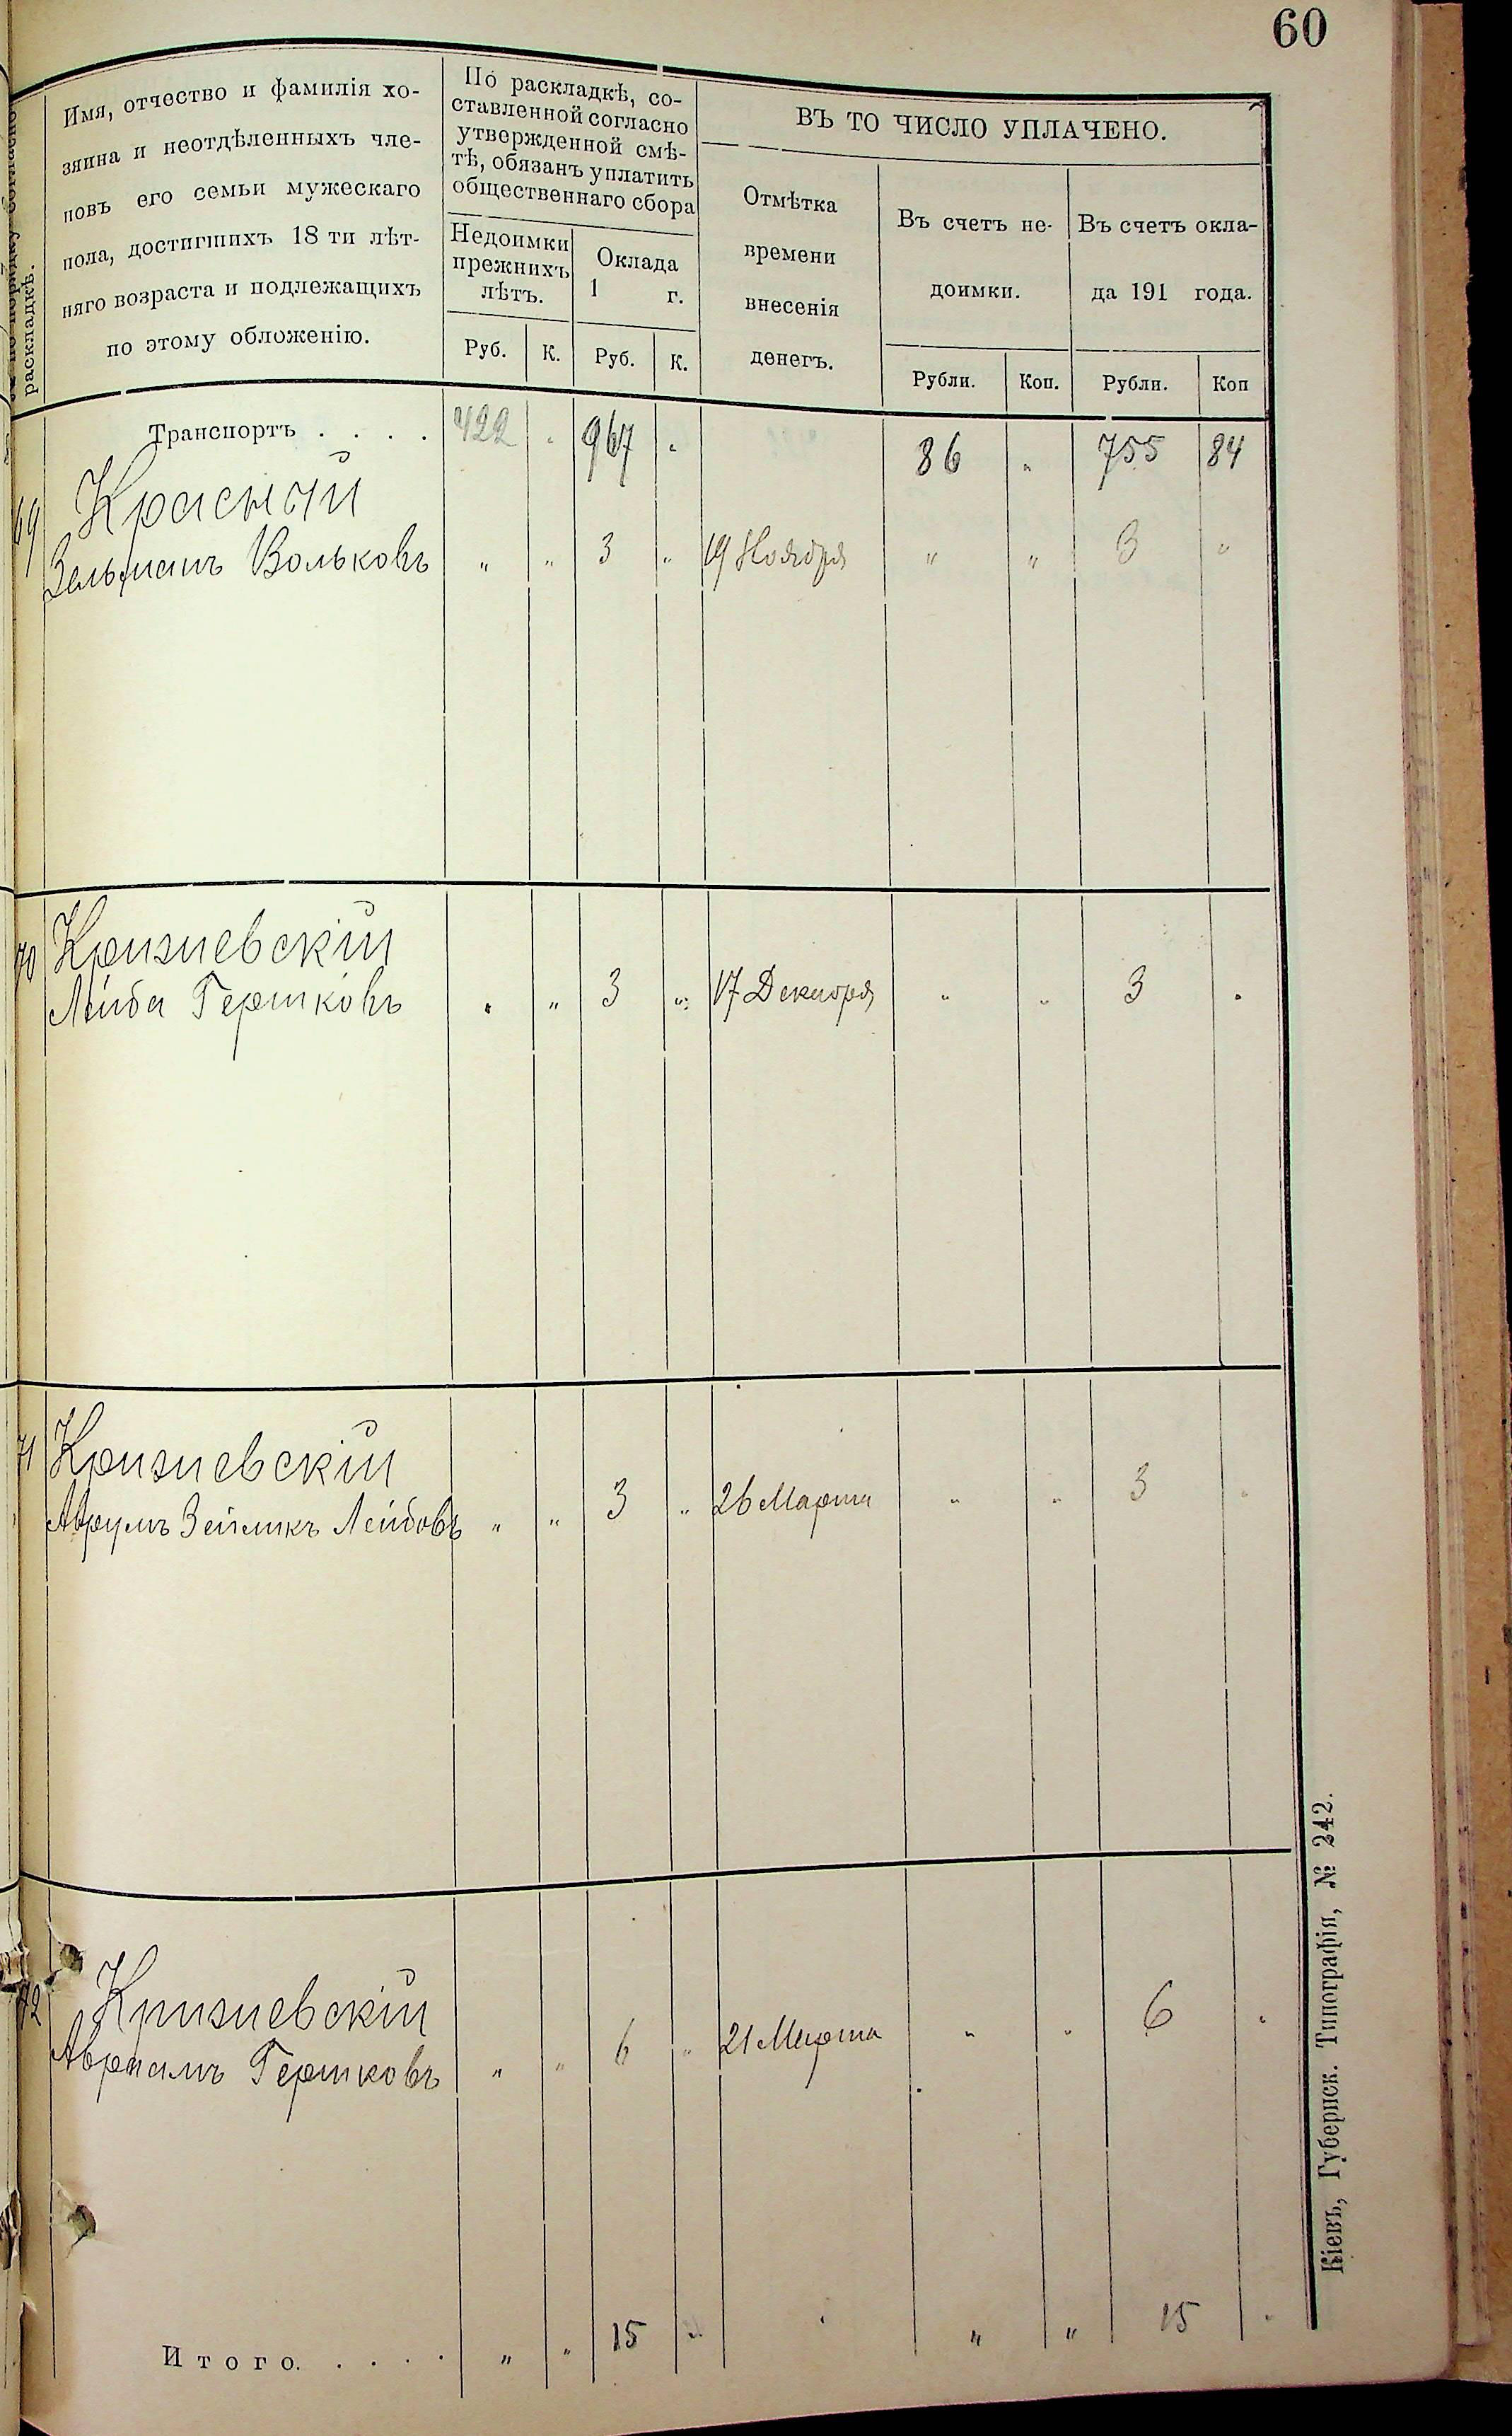 60
раскладкѣ.
Имя, отчество и фамилія хо-
зяина и неотдѣленныхъ чле-
новъ его семьи мужескаго
пола, достигшихъ 18 ти лѣт-
няго возраста и подлежащихъ
по этому обложенію.
По раскладкѣ, со-
ставленной согласно
утвержденной смѣ-
тѣ, обязанъ уплатить
общественнаго сбора
Недоимки
прежнихъ
лѣтъ.
Оклада
1 г.
Руб. К. Руб. К.
ВЪ ТО ЧИСЛО УПЛАЧЕНО.
Отмѣтка
времени
внесенія
денегъ.
Въ счетъ не-
доимки.
Въ счетъ окла-
да 191 года.
Рубли. Коп. Рубли. Коп
Транспортъ . . . . 422 „ 967 „ 86 „ 755 84
69 Красный
Зельманъ Вольковъ „ „ 3 „ 19 Ноября „ „ 3 „
70 Кризиевскій
Лейба Гершковъ „ „ 3 „ 17 Декабря „ „ 3 „
71 Кризиевскій
Аврумъ Зейликъ Лейбовъ „ „ 3 „ 26 Марта „ „ 3 „
72 Кризиевскій
Авраамъ Гершковъ „ „ 6 „ 21 Марта „ „ 6 „
Итого. . . . . „ „ 15 „ „ „ 15 „
Кіевъ, Губернск. Типографія, № 242.